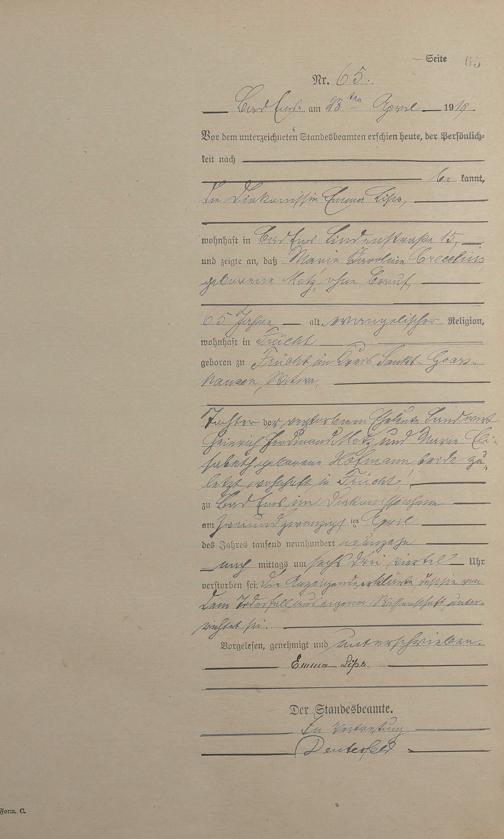 Seite 65
Nr. 65.
Bad Ems am 23ten April 1919.
Vor dem unterzeichneten Standesbeamten erschien heute, der Persönlich-
keit nach
be kannt,
die Diakonissin Emma Lips,
wohnhaft in Bad Ems Lindenstraße 15,
und zeigte an, daß Marie Karoline Crecelius
geborene Metz, ohne Beruf
65 Jahre alt, evangelischer Religion,
wohnhaft in Frücht
geboren zu Frücht im Kreis Sankt Goars-
hausen, Witwe,
Tochter der verstorbenen Eheleute Landwirt
Heinrich Ferdinand Metz und Marie Eli-
sabeth geborene Hofmann beide zu-
letzt wohnhaft in Frücht
zu Bad Ems im Diakonissenheim
am zweiundzwanzigsten April
des Jahres tausend neunhundert neunzehn
nach mittags um sechs drei viertel Uhr
verstorben sei. Die Anzeigende erklärte, daß sie von
dem Todesfall aus eigener Wissenschaft unter-
richtet sei.
Vorgelesen, genehmigt und unterschrieben.
Emma Lips.
Der Standesbeamte.
In Vertretung
Form. C.